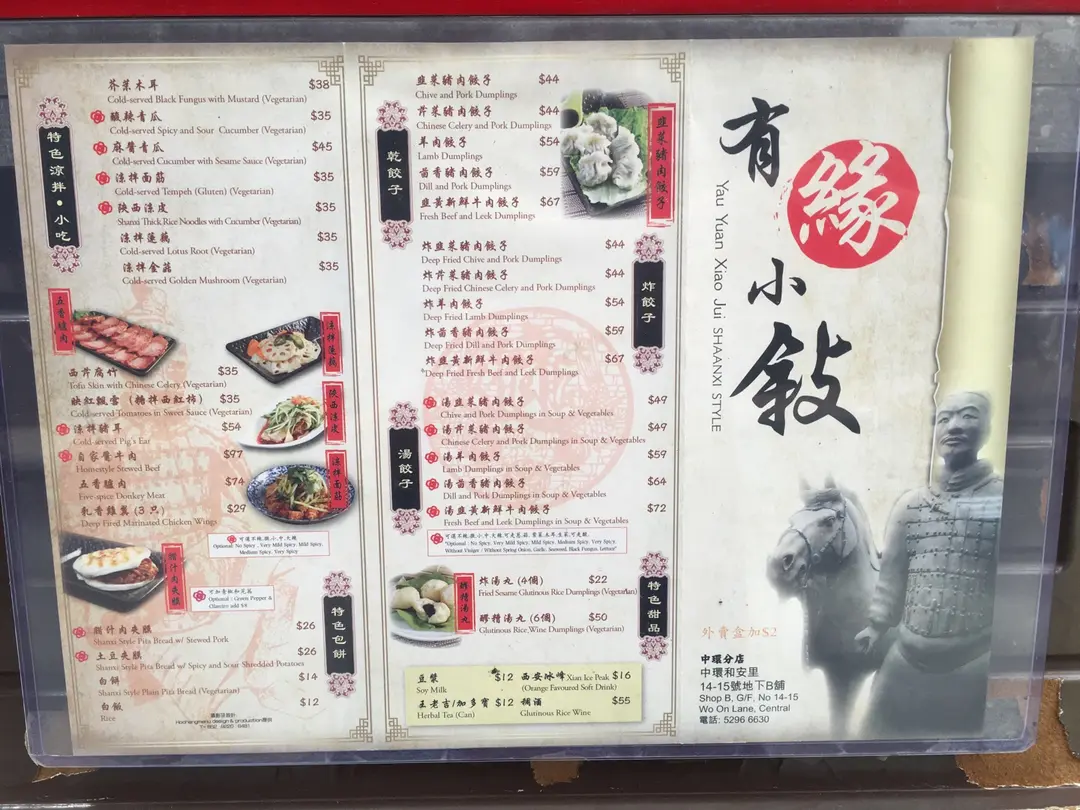 特色涼拌•小吃
芥菜木耳 $38
Cold-served Black Fungus with Mustard (Vegetarian)
酸辣青瓜 $35
Cold-served Spicy and Sour Cucumber (Vegetarian)
麻醬青瓜 $45
Cold-served Cucumber with Sesame Sauce (Vegetarian)
涼拌面筋 $35
Cold-served Tempeh (Gluten) (Vegetarian)
陝西涼皮 $35
Shanxi Thick Rice Noodles with Cucumber (Vegetarian)
涼拌蓮藕 $35
Cold-served Lotus Root (Vegetarian)
涼拌金菇 $35
Cold-served Golden Mushroom (Vegetarian)
五香驢肉
涼拌蓮藕
陝西涼皮
涼拌面筋
西芹腐竹 $35
Tofu Skin with Chinese Celery (Vegetarian)
映紅飄雪 (糖拌西紅柿) $35
Cold-served Tomatoes in Sweet Sauce (Vegetarian)
涼拌豬耳 $54
Cold-served Pig's Ear
自家醬牛肉 $97
Homestyle Stewed Beef
五香驢肉 $74
Five-spice Donkey Meat
乳香雞翼 (3 只) $29
Deep Fried Marinated Chicken Wings
Optional: No Spicy , Very Mild Spicy, Mild Spicy,
Medium Spicy, Very Spicy
臘汁肉夾饃
Optional : Green Pepper &
Cilantro add $4
特色包餅
臘汁肉夾饃 $26
Shanxi Style Pita Bread w/ Stewed Pork
土豆夾饃 $26
Shanxi Style Pita Bread w/ Spicy and Sour Shredded Potatoes
白餅 $14
Shanxi Style Plain Pita Bread (Vegetarian)
白飯 $12
Rice
乾餃子
韭菜豬肉餃子 $44
Chive and Pork Dumplings
芹菜豬肉餃子 $44
Chinese Celery and Pork Dumplings
羊肉餃子 $54
Lamb Dumplings
茴香豬肉餃子 $59
Dill and Pork Dumplings
韭黃新鮮牛肉餃子 $67
Fresh Beef and Leek Dumplings
韭菜豬肉餃子
炸餃子
炸韭菜豬肉餃子 $44
Deep Fried Chive and Pork Dumplings
炸芹菜豬肉餃子 $44
Deep Fried Chinese Celery and Pork Dumplings
炸羊肉餃子 $54
Deep Fried Lamb Dumplings
炸茴香豬肉餃子 $59
Deep Fried Dill and Pork Dumplings
炸韭黃新鮮牛肉餃子 $67
Deep Fried Fresh Beef and Leek Dumplings
湯餃子
湯韭菜豬肉餃子 $49
Chive and Pork Dumplings in Soup & Vegetables
湯芹菜豬肉餃子 $49
Chinese Celery and Pork Dumplings in Soup & Vegetables
湯羊肉餃子 $59
Lamb Dumplings in Soup & Vegetables
湯茴香豬肉餃子 $64
Dill and Pork Dumplings in Soup & Vegetables
湯韭黃新鮮牛肉餃子 $72
Fresh Beef and Leek Dumplings in Soup & Vegetables
"Optional : No Spicy, Very Mild Spicy, Mild Spicy, Medium Spicy, Very Spicy,
Without Vinigar / Without Spring Onion, Garlic, Seaweed, Black Fungus, Lettuce"
醪糟湯丸
特色甜品
炸湯丸 (4個) $22
Fried Sesame Glutinous Rice Dumplings (Vegetarian)
醪糟湯丸 (6個) $50
Glutinous Rice Wine Dumplings (Vegetarian)
豆漿 $12
Soy Milk
西安冰峰 Xian Ice Peak $16
(Orange Favoured Soft Drink)
王老吉/加多寶 $12
Herbal Tea (Can)
稠酒 $55
Glutinous Rice Wine
有緣小敍
Yau Yuan Xiao Jui SHAANXI STYLE
外賣盒加$2
中環分店
中環和安里
14-15號地下B舖
Shop B, G/F, No 14-15
Wo On Lane, Central
電話: 5296 6630